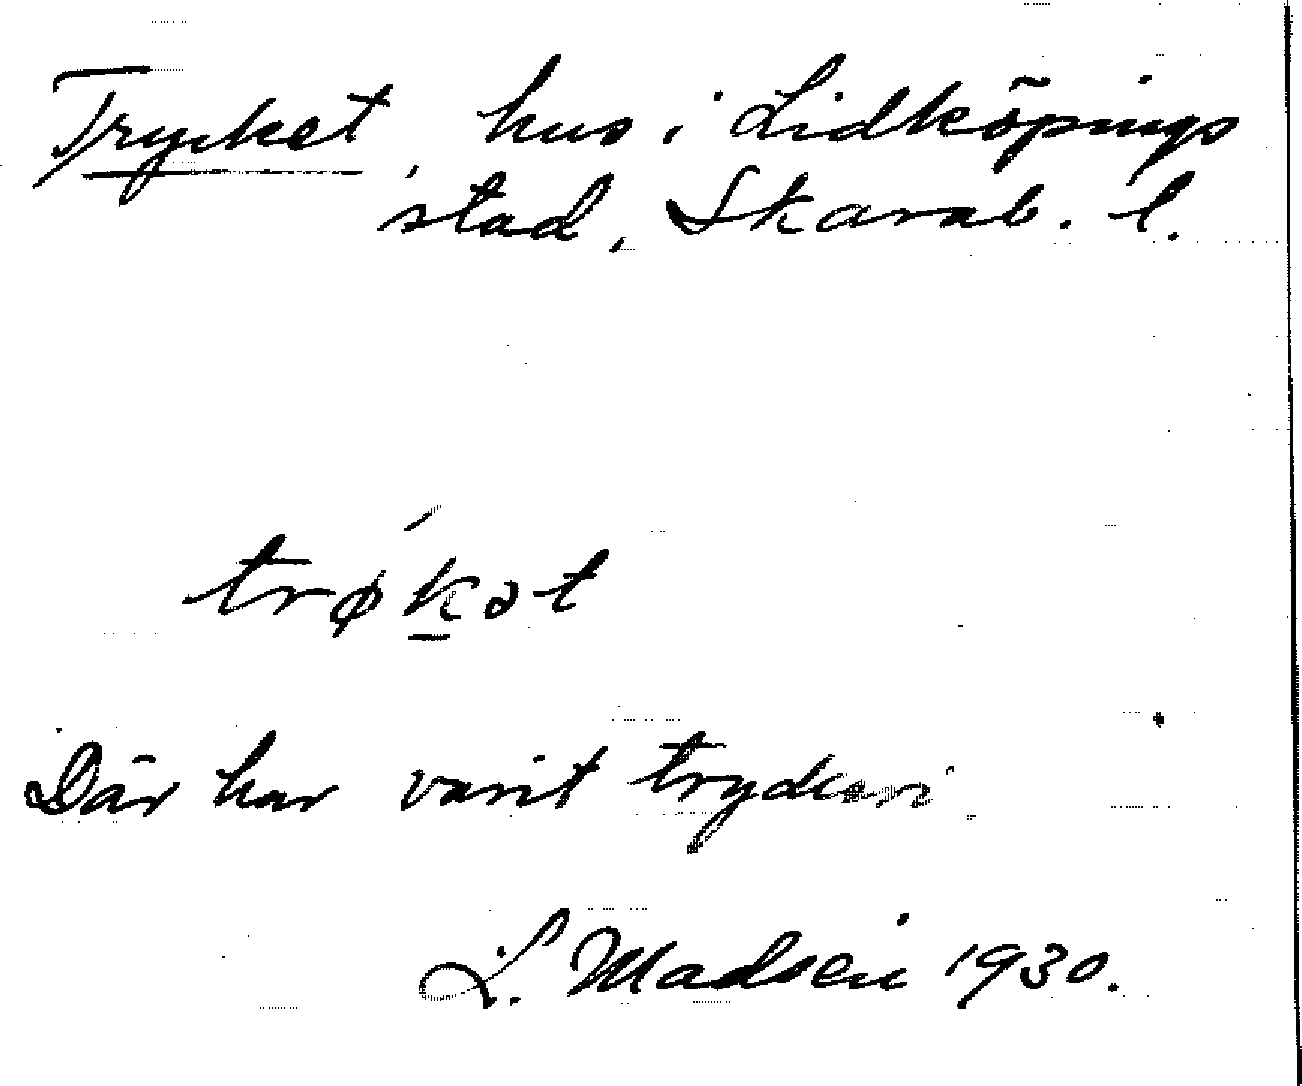 Trycket, hus i Lidköpings
stad, Skarab. l.
trǿkət
Där har varit tryckeri
L. Madsen 1930.